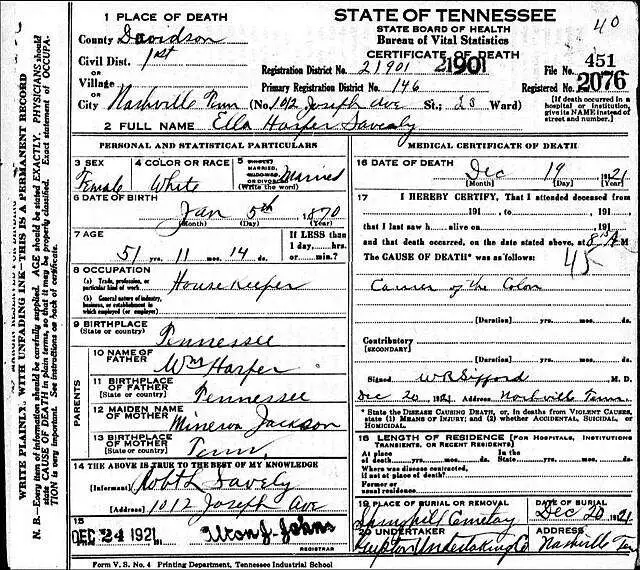 STATE OF TENNESSEE
STATE BOARD OF HEALTH
Bureau of Vital Statistics
CERTIFICATE OF DEATH
40
1 PLACE OF DEATH
County Davidson
Civil Dist. 1st
OR
Village
OR
City Nashville Tenn (No. 1012 Joseph Ave St.; 23 Ward)
Registration District No. 21901 21901
Primary Registration District No. 146
File No. 451
Registered No. 2076
[If death occurred in a hospital or institution, give its NAME instead of street and number.]
2 FULL NAME Ella Harper Savely
PERSONAL AND STATISTICAL PARTICULARS
3 SEX Female
4 COLOR OR RACE White
5 MARRIED, OR DIVORCED (Write the word) Married
6 DATE OF BIRTH
Jan 5th 1870
(Month) (Day) (Year)
7 AGE
51 yrs. 11 mos. 14 ds.
If LESS than 1 day,....hrs. or....min.?
8 OCCUPATION
(a) Trade, profession, or particular kind of work
(b) General nature of industry, business, or establishment in which employed (or employer)
House Keeper
9 BIRTHPLACE
(State or country) Tennessee
PARENTS
10 NAME OF FATHER Wm Harper
11 BIRTHPLACE OF FATHER
[State or country] Tennessee
12 MAIDEN NAME OF MOTHER Minerva Jackson
13 BIRTHPLACE OF MOTHER
(State or country) Tenn.
14 THE ABOVE IS TRUE TO THE BEST OF MY KNOWLEDGE
(Informant) Robt L Savely
(Address) 1012 Joseph Ave
15
DEC 24 1921
REGISTRAR
MEDICAL CERTIFICATE OF DEATH
16 DATE OF DEATH
Dec 19 1921
(Month) (Day) (Year)
17 I HEREBY CERTIFY, That I attended deceased from
191 , to 191 ,
that I last saw h alive on 191 ,
and that death occurred, on the date stated above, at M
The CAUSE OF DEATH* was as follows:
45
Cancer of the Colon
(Duration) yrs. mos. ds.
Contributory
(SECONDARY)
(Duration) yrs. mos. ds.
Signed W R Sifford M. D.
Dec 20 1921 Address Nashville Tenn.
* State the DISEASE CAUSING DEATH, or, in deaths from VIOLENT CAUSES, state (1) MEANS OF INJURY; and (2) whether ACCIDENTAL, SUICIDAL, or HOMICIDAL.
18 LENGTH OF RESIDENCE [FOR HOSPITALS, INSTITUTIONS TRANSIENTS, OR RECENT RESIDENTS]
At place of death yrs. mos. ds. In the State yrs. mos. ds.
Where was disease contracted, if not at place of death?
Former or usual residence
19 PLACE OF BURIAL OR REMOVAL
Springhill Cemetery
DATE OF BURIAL
Dec 20 1921
20 UNDERTAKER
Undertaking Co
ADDRESS
Nashville Ten
Form V. S. No. 4 Printing Department, Tennessee Industrial School
WRITE PLAINLY, WITH UNFADING INK—THIS IS A PERMANENT RECORD
N. B.—Every item of information should be carefully supplied. AGE should be stated EXACTLY. PHYSICIANS should
state CAUSE OF DEATH in plain terms, so that it may be properly classified. Exact statement of OCCUPA-
TION is very important. See instructions on back of certificate.